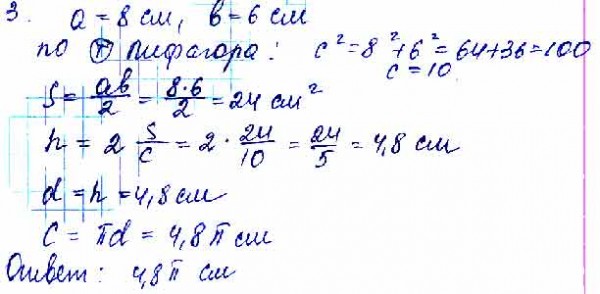 3. a = 8 см, b = 6 см
по т Пифагора: c² = 8² + 6² = 64 + 36 = 100
c = 10
S = ab/2 = 8·6/2 = 24 см²
h = 2 S/c = 2 · 24/10 = 24/5 = 4,8 см
d = h = 4,8 см
C = πd = 4,8 π см
Ответ: 4,8 π см